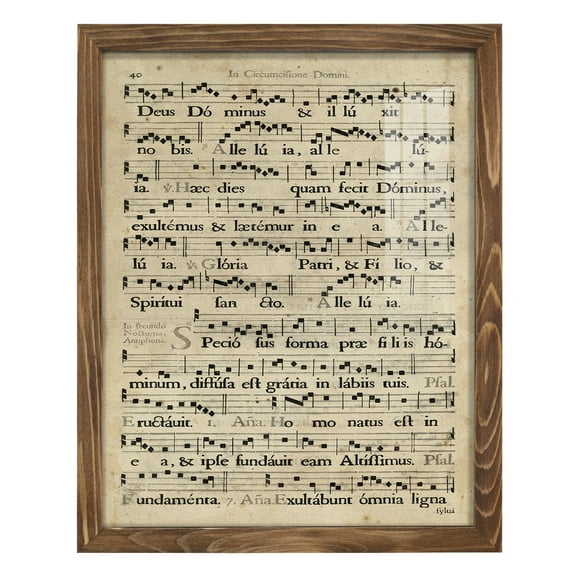 40 In Circumcisione Domini.
Deus Dó minus & il lú xit
no bis. Alle lú ia, al le lú-
ia. ℣Hæc dies quam fecit Dóminus,
exultémus & lætémur in e a. Al le-
lú ia. ℣Glória Patri, & Fí lio, &
Spirítui ſan cto. Al le lú ia.
In ſecundo
Nocturno,
Antiphona.
S Peció ſus forma præ fi li is hó-
minum, diffúſa eſt grátia in lábiis tuis. Pſal.
Eructávit. 1. Aña. Ho mo natus eſt in
e a, & ipſe fundávit eam Altíſſimus. Pſal.
Fundaménta. 7. Aña. Exultábunt ómnia ligna
ſylvá